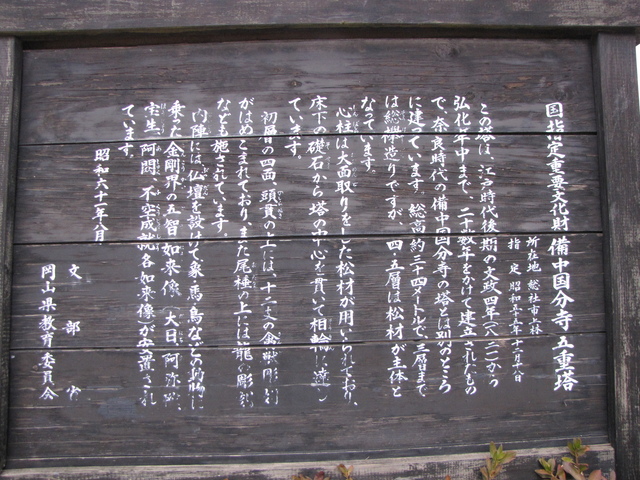 国指定重要文化財 備中国分寺五重塔
所在地 総社市上林
指定 昭和五十五年十二月十八日
この塔は、江戸時代後期の文政四年(一八二一)から
弘化年中まで、二十数年をかけて建立されたもの
で、奈良時代の備中国分寺の塔とは別のところ
に建っています。総高約三十四メートルで、三層まで
は総欅造りですが、四・五層は松材が主体と
なっています。
心柱は大面取りをした松材が用いられており、
床下の礎石から塔の中心を貫いて相輪に達し
ています。
初層の四面、頭貫の上には、十二支の金獣彫刻
がはめこまれており、また尾棰の上には龍の彫刻
なども施されています。
内陣には仏壇を設けて象・馬・鳥などの動物に
乗った金剛界の五智如来像(大日、阿弥陀、
宝生、阿閦、不空成就各如来像)が安置され
ています。
昭和六十年八月
文部省
岡山県教育委員会